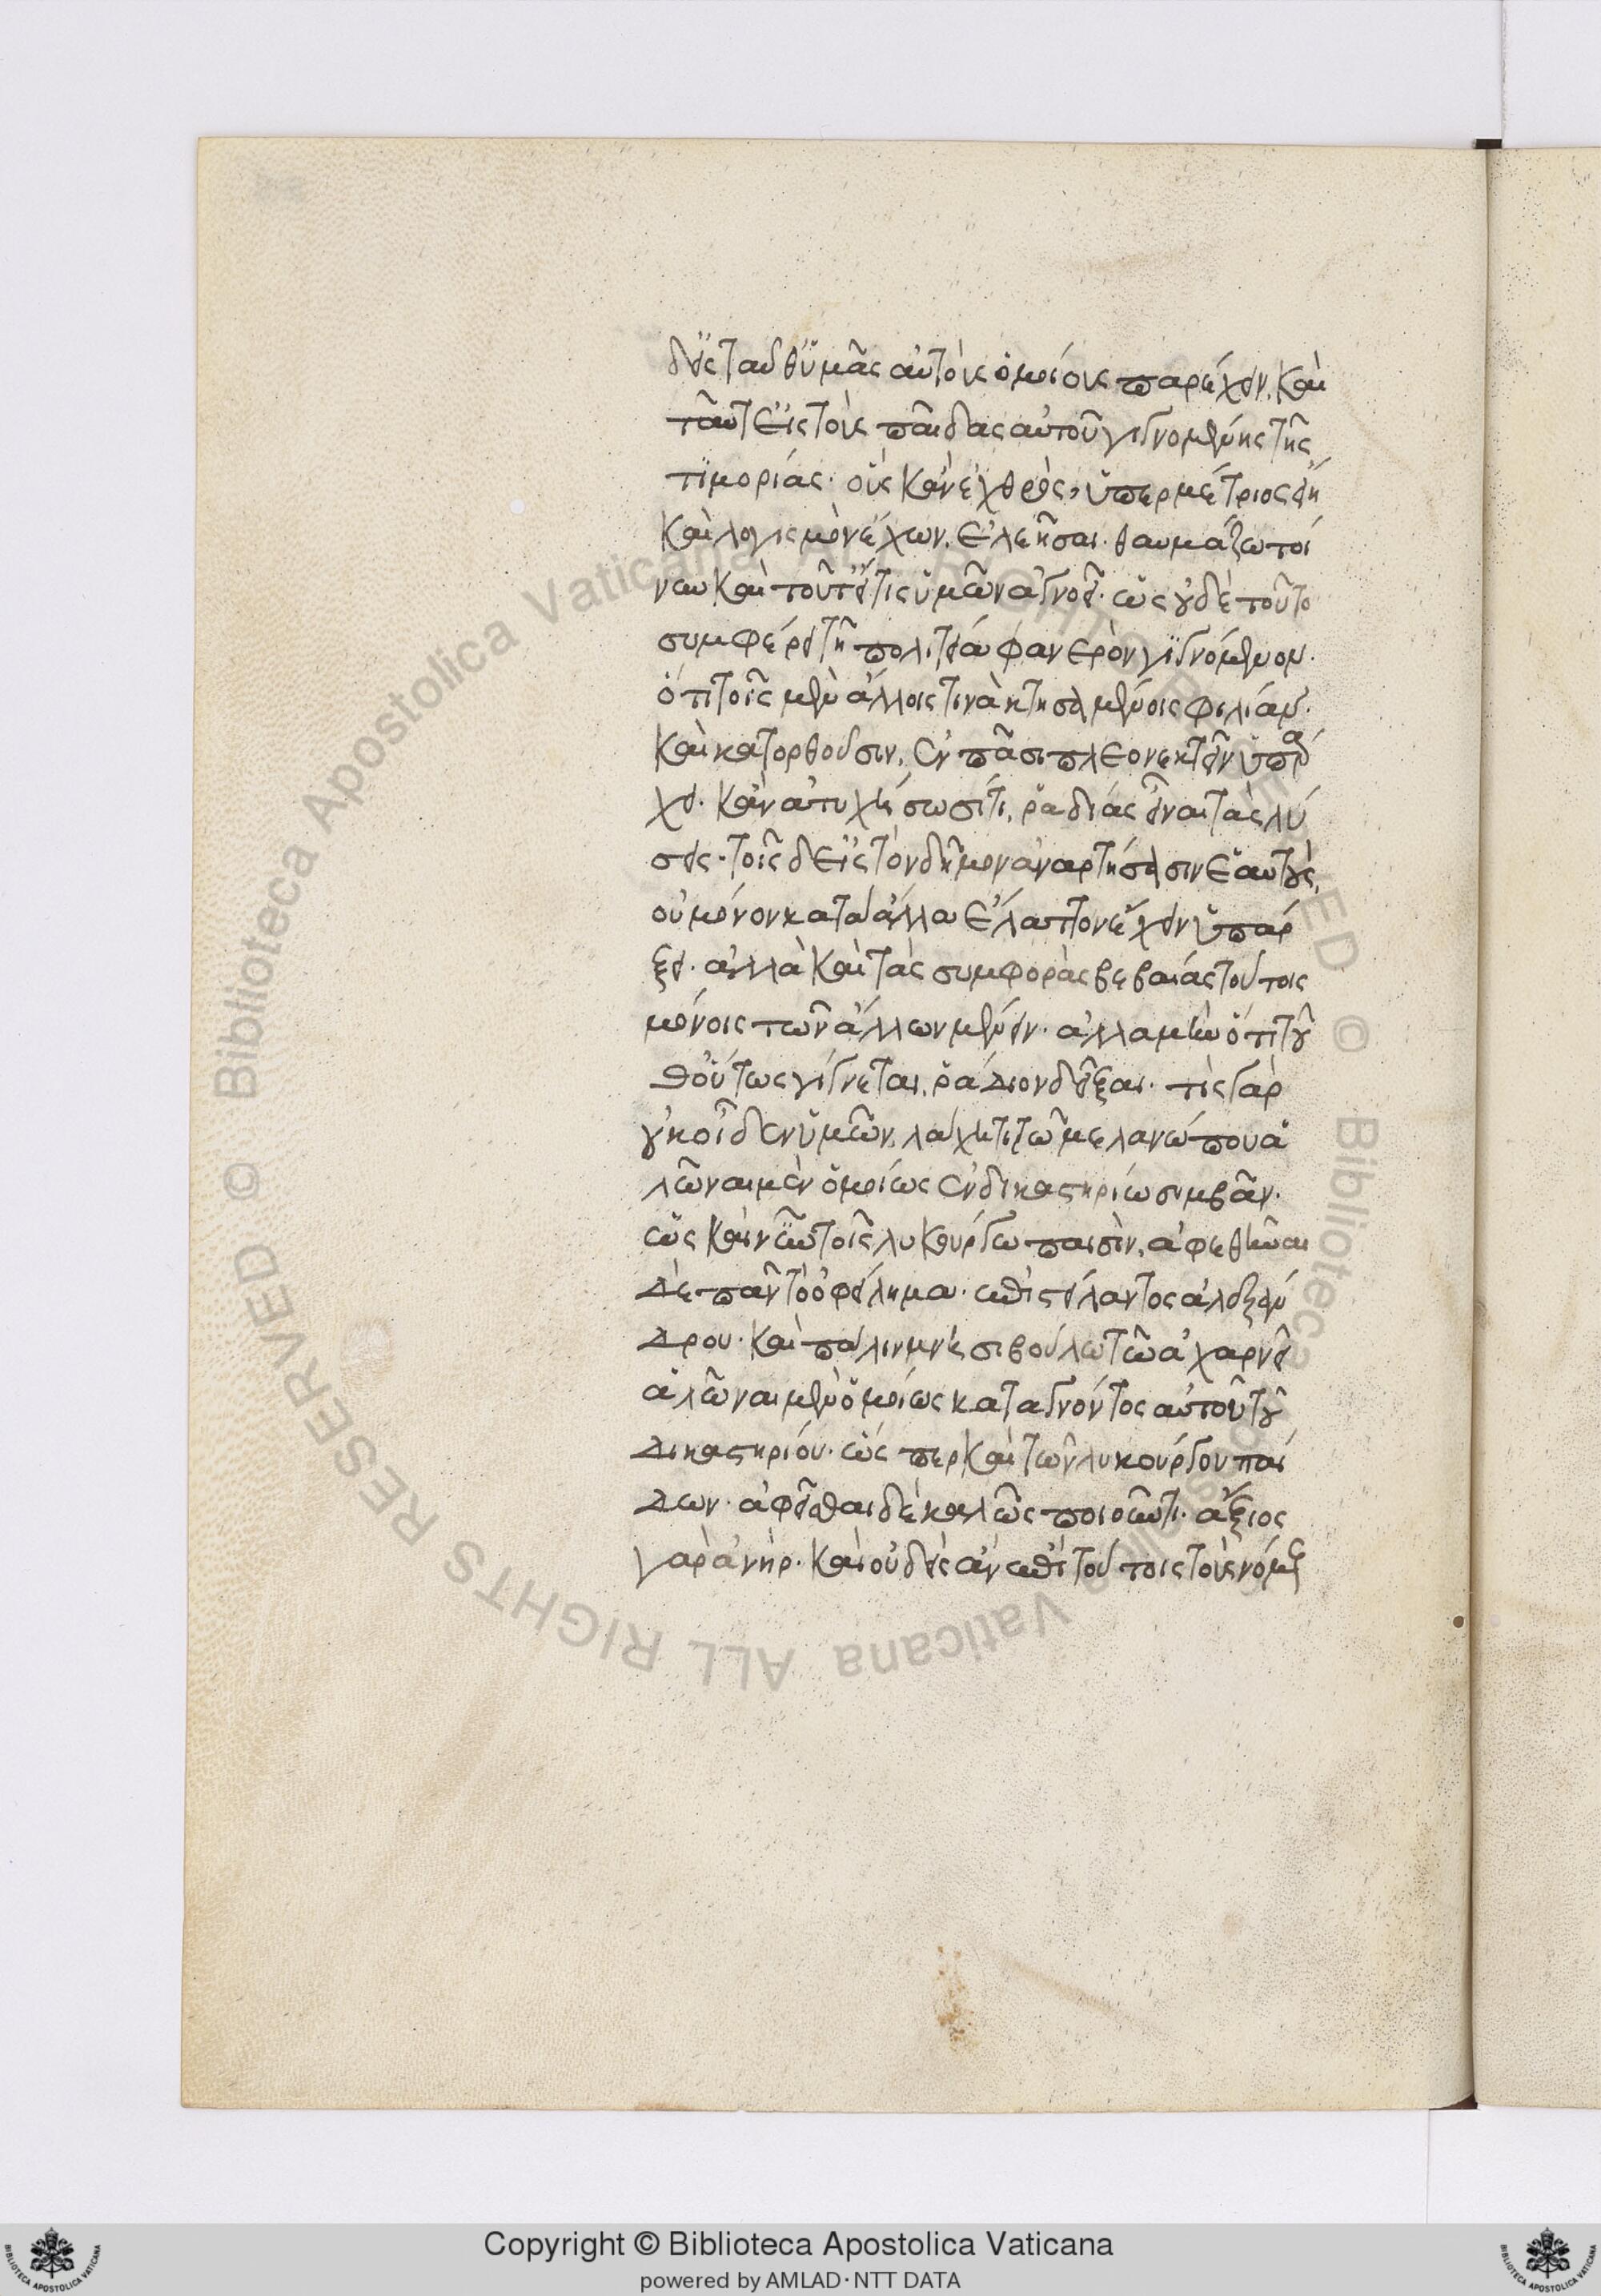 δεῖς ταῦθ ὑμᾶς αὐτοὺς ὁμοίους παρέχειν, καὶ
ταῦτ εἰς τοὺς παῖδας αὐτοῦ γιγνομένης τῆς
τιμορίας· οὓς κἂν ἐχθρὸς, ὑπερμέτριος εἴη
καὶ λογισμὸν ἔχων, ἐλεῆσαι· θαυμάζω τοί
νυν καὶ τοῦτ εἴ τις ὑμῶν ἀγνοεῖ· ὡς οὐδὲ τοῦτο
συμφέρει τῇ πολιτείᾳ φανερὸν γιγνόμενον·
ὅτι τοῖς μὲν ἄλλοις τινὰ κτησαμένοις φιλίαν·
καὶ κατορθοῦσιν, ἐν πᾶσι πλεονεκτεῖν ὑπάρ
χει· κἂν ἀτυχήσωσί τι, ῥαδίας εἶναι τὰς λύ
σεις· τοῖς δ εἰς τὸν δῆμον ἀναρτήσασιν ἑαυτοὺς,
οὐ μόνον κατὰ τἄλλα ἔλαττον ἔχειν ὑπάρ
ξει· ἀλλὰ καὶ τὰς συμφορὰς βεβαίας τούτοις
μόνοις τῶν ἄλλων μένειν· ἀλλὰ μὴν ὅτι τοῦ
θ οὕτως γίγνεται, ῥάδιον δεῖξαι· τίς γὰρ
οὐκ οἶδεν ὑμῶν, λάχητι τῷ μελανώπου ἁ
λῶναι μὲν ὁμοίως ἐν δικαστηρίῳ συμβὰν·
ὡς καὶ νῦν τοῖς λυκούργου παισὶν, ἀφεθῆναι
δὲ πᾶν τὸ ὀφείλημα· ἐπιστείλαντος ἀλεξάν
δρου· καὶ πάλιν μνησιβούλῳ τῷ ἀχαρνεῖ
ἁλῶναι μὲν ὁμοίως καταγνόντος αὐτοῦ τοῦ
δικαστηρίου· ὥσπερ καὶ τῶν λυκούργου παί
δων· ἀφεῖσθαι δὲ καλῶς ποιοῦντι· ἄξιος
γὰρ ἁνήρ· καὶ οὐδεὶς ἂν ἐπὶ τούτοις τοὺς νόμους
Copyright © Biblioteca Apostolica Vaticana
powered by AMLAD·NTT DATA